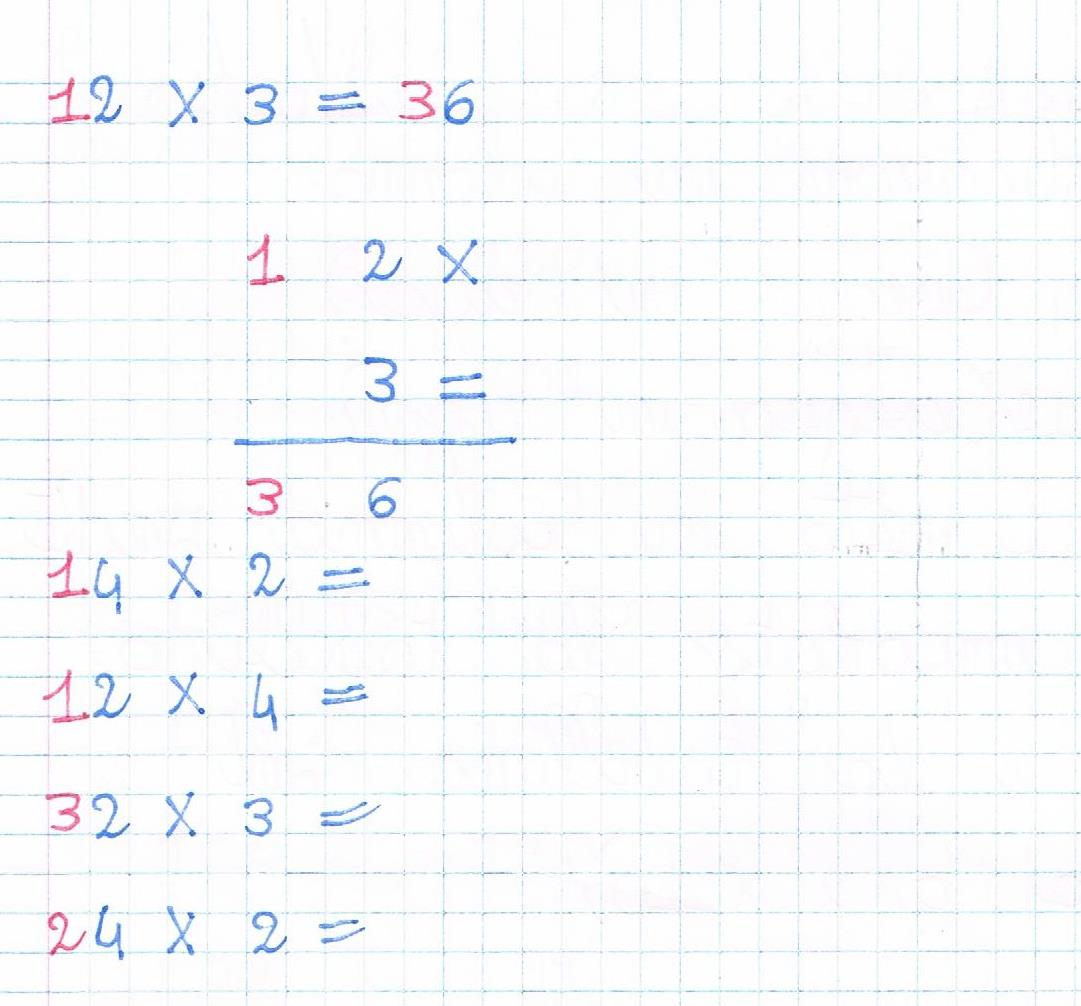 12 X 3 = 36
1 2 X
3 =
3 6
14 X 2 =
12 X 4 =
32 X 3 =
24 X 2 =